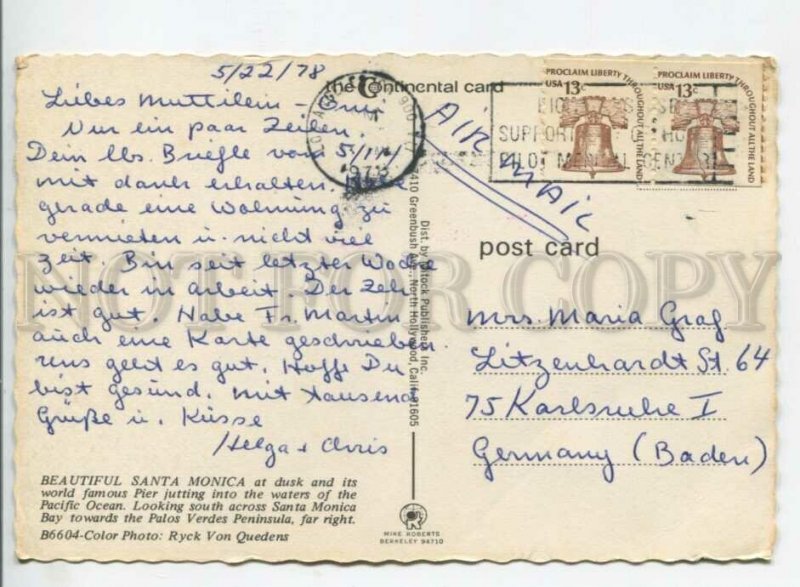 5/22/78
the Continental card
Liebes Muttilein - Omi
Nur ein paar Zeilen.
Dein lbs. Briefle vom 5/14/
mit dank erhalten. Habe
gerade eine Wohnung zu
vermieten u. nicht viel
Zeit. Bin seit letzter Woche
wieder in arbeit. Der Zeh
ist gut. Habe Fr. Martin
auch eine Karte geschrieben
uns geht es gut. Hoffe Du
bist gesund. mit tausend
Grüße u. Küsse
Helga + Chris
BEAUTIFUL SANTA MONICA at dusk and its
world famous Pier jutting into the waters of the
Pacific Ocean. Looking south across Santa Monica
Bay towards the Palos Verdes Peninsula, far right.
B6604-Color Photo: Ryck Von Quedens
1978
AIR MAIL
PROCLAIM LIBERTY THROUGHOUT ALL THE LAND
USA 13c
PROCLAIM LIBERTY THROUGHOUT ALL THE LAND
USA 13c
SUPPORT
Dist. by Mitock Publishers Inc.
Greenbush Ave., North Hollywood, Calif. 91605
post card
Mrs. Maria Graf
Litzenhardt St. 64
75 Karlsruhe I
Germany (Baden)
MIKE ROBERTS
BERKELEY 94710
NOT FOR COPY